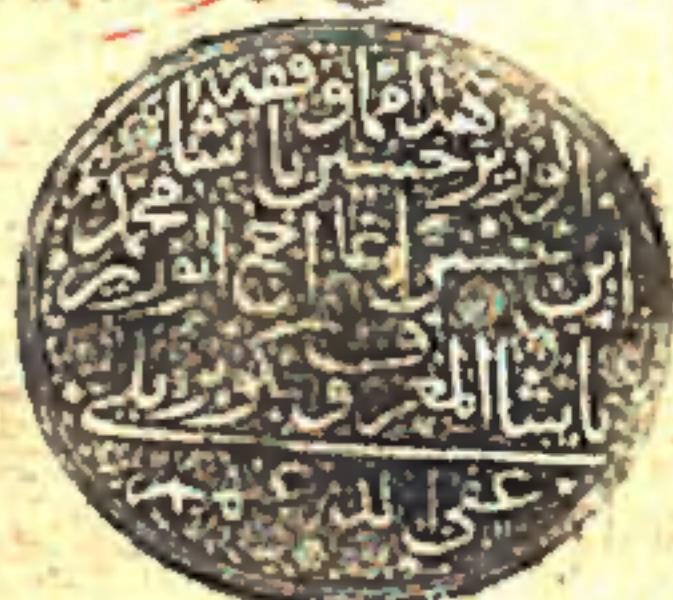 هذا مما وقفه
الوزير حسين باشا
ابن حسن اغا اخ الوزير محمد
باشا المعروف بكوپريلي
عفى الله عنهم